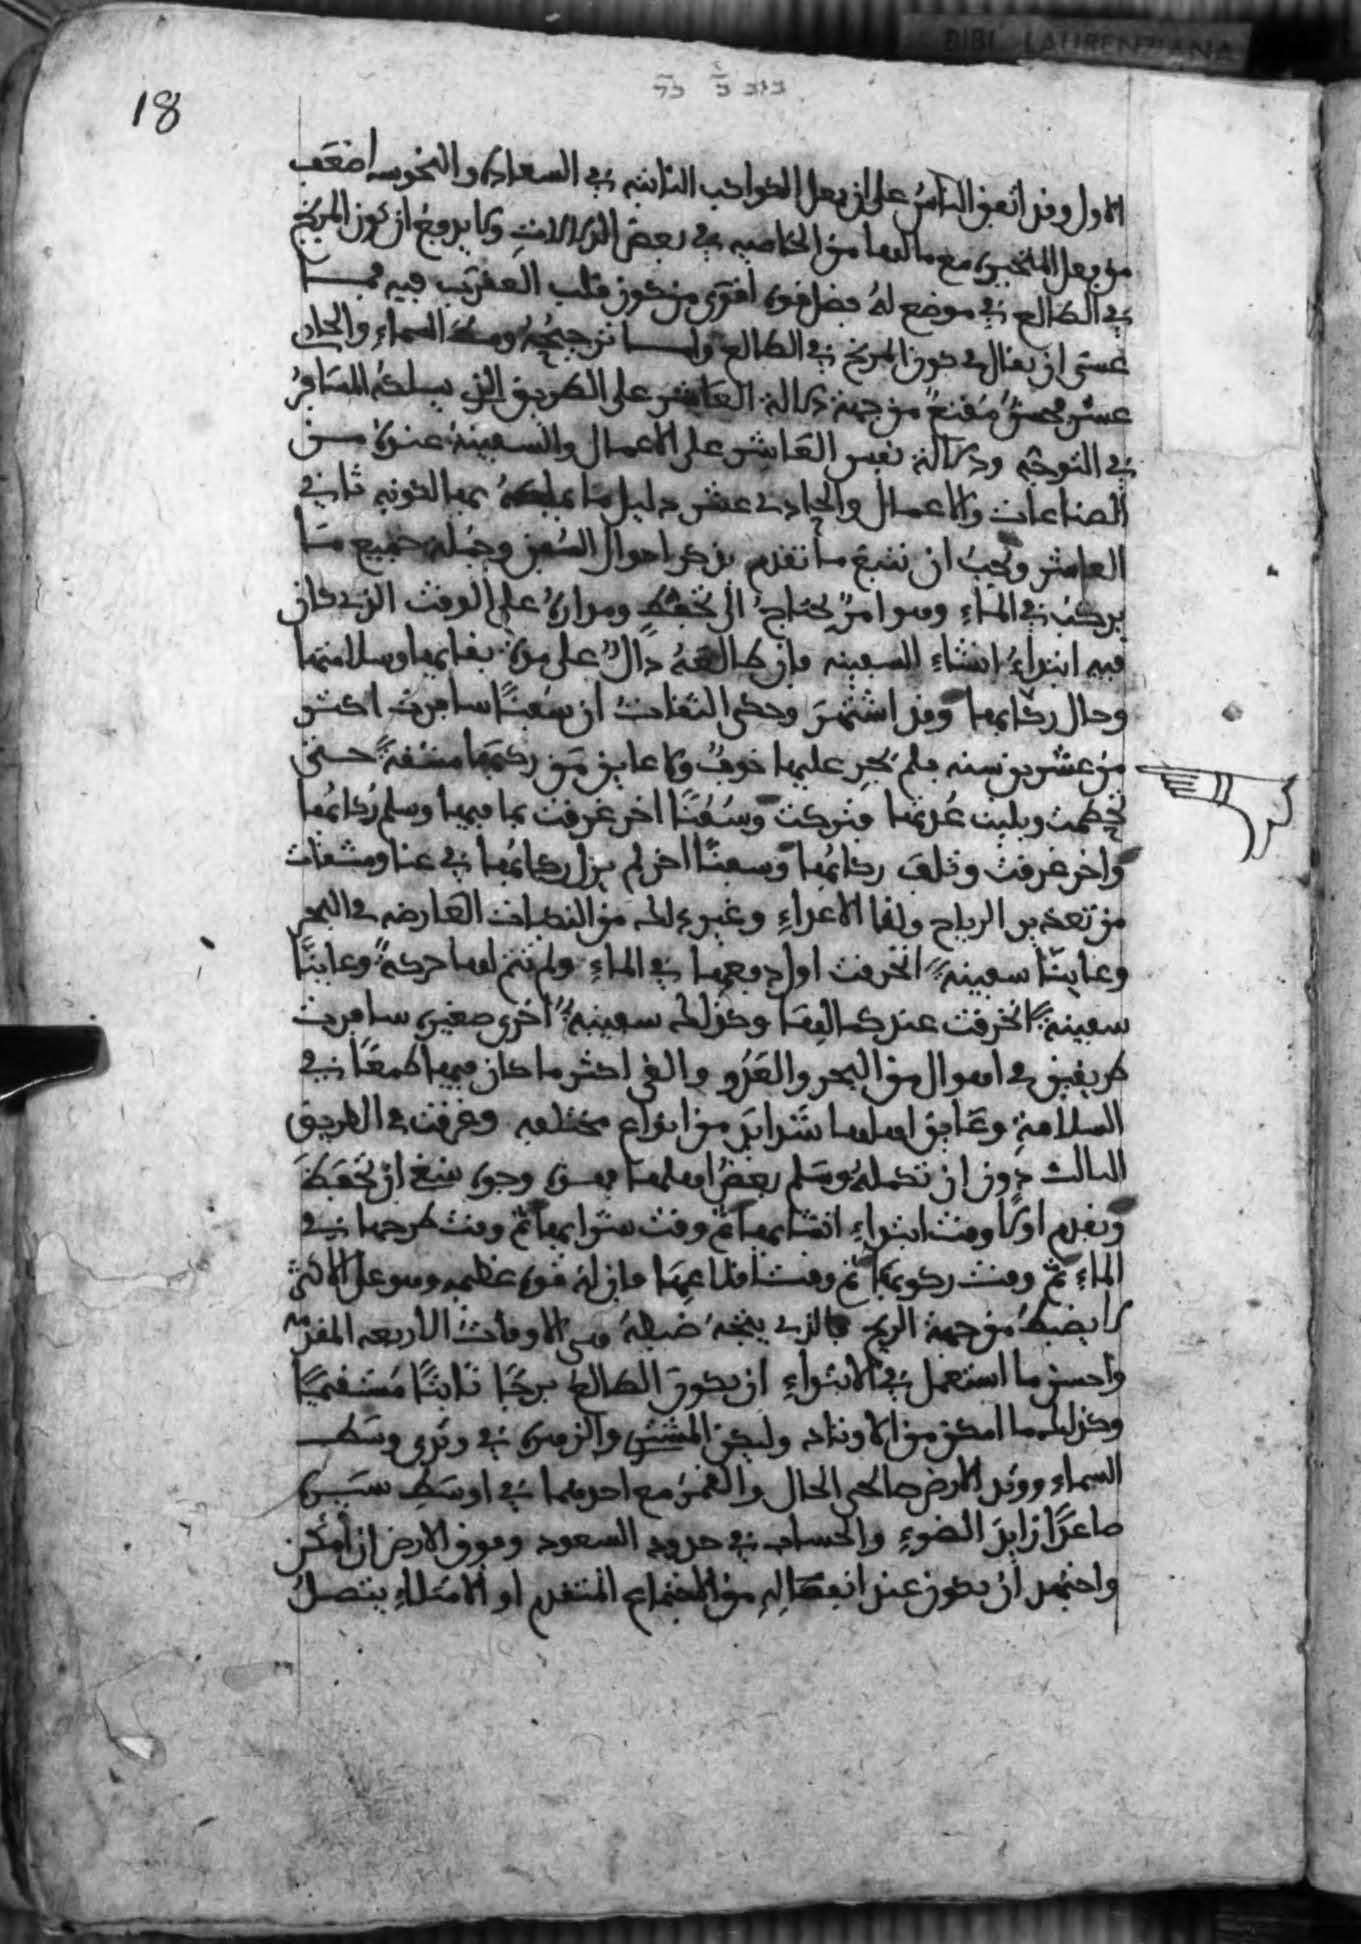 BIBL LAURENZIANA
18
الاول وقد اتفق الناس على ان فعل الكواكب الثابته في السعاده والنحوسه اضعف
من فعل المتحيره مع مالها من الخاصيه في بعض الدلالات ولا يدفع ان كون المريخ
في الطالع في موضع له فضل قوه اقوى من كون قلب العقرب فيه فما
عسى ان يقال في كون المريخ في الطالع واما ترجيحه وسط السماء والحادي
عشر مقنع من جهة دلالة العاشر على الطريق الذي يسلكه المسافر
في التوجه ودلالة نفس العاشر على الاعمال والسفينة عنده من
الصناعات والاعمال والحادي عشر دليل ما يملكه بها لكونه ثاني
العاشر ويجب ان نتبع ما تقدم بذكر احوال السفن وجملة جميع ما
يركب في الماء وهو امر يحتاج الى تحفظ ومداره على الوقت الذي كان
فيه ابتداء انشاء السفينه فان طالعه دال على مدة بقايها وسلامتها
وحال ركابها وقد اشتهر وحكى الثقات ان سفنا سافرت اكثر
من عشرين سنه فلم يجر عليها خوف ولا عاين من ركبها مشقة حتى
تحطمت وبليت عدتها فتركت وسفنا اخر غرقت بما فيها وسلم ركابها
واخر غرقت وتلف ركابها وسفنا اخر لم يزل ركابها في عنا ومشقات
من تعذير الرياح ولقا الاعداء وغير ذلك من النكبات العارضه في البحر
وعاينا سفينة انخرقت اول دفعها في الماء ولم تتم لها حركة وعاينا
سفينة انخرقت عند كمالها وكذلك سفينة اخرى صغيره سافرت
طريقين في اهوال من البحر والعدو والقي اكثر ما كان فيها طمعا في
السلامة وعاين اهلها شدايد من انواع مختلفه وغرقت في الطريق
الثالث دون ان تكمله وسلم بعض اهلها فمن وجوه ينبغي ان تحفظ
وتقدم اولا وقت ابتداء انشايها ثم وقت شرايها ثم وقت طرحها في
الماء ثم وقت ركوبها ثم وقت اقلاعها فان له قوه عظيمه وهو على الاكثر
لا يضبط من جهة الريح فالذي يتجه ضبطه هي الاوقات الاربعه المقدمه
واحسن ما استعمل في الابتداء ان يكون الطالع برجا ثابتا مستقيما
وكذلك ما امكن من الاوتاد وليكن المشتري والزهره في وتدي وسط
السماء ووتد الارض صالحي الحال والقمر مع احدهما في اوسط سيره
صاعدا زايد الضوء والحساب في حدود السعود وفوق الارض ان امكن
واجتهد ان يكون عند انفصاله من الاجتماع المتقدم او الامتلاء يتصل